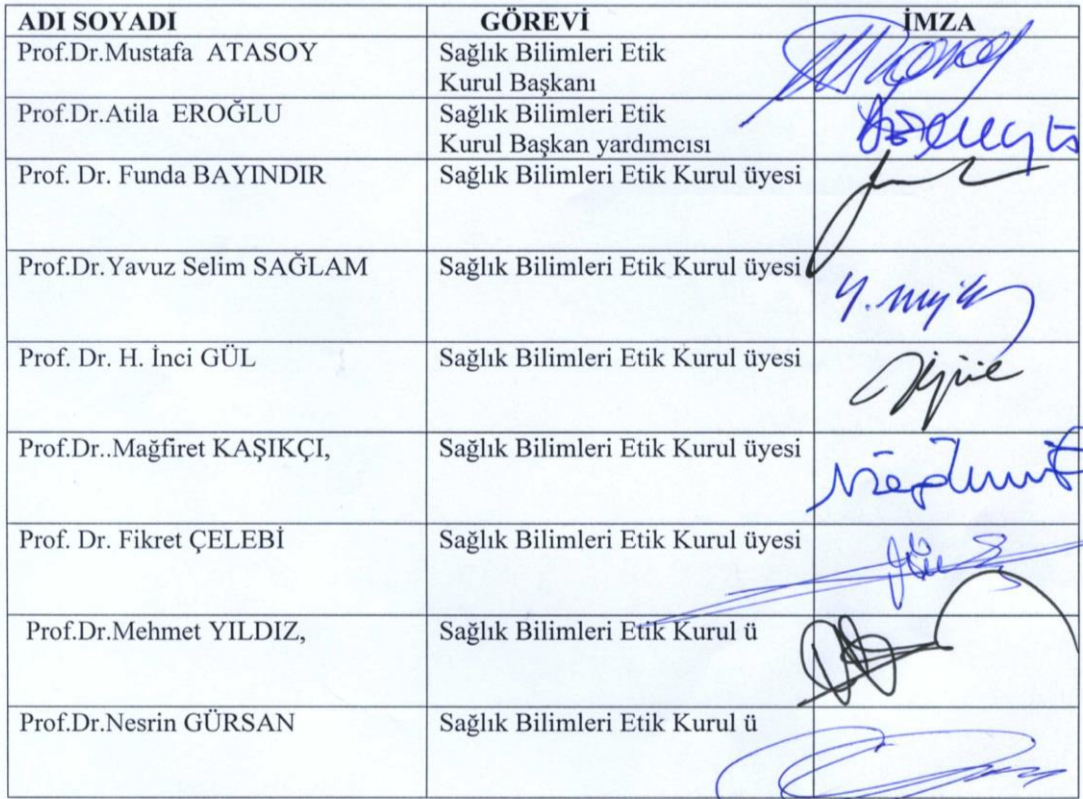 ADI SOYADI GÖREVİ İMZA
Prof.Dr.Mustafa ATASOY Sağlık Bilimleri Etik
Kurul Başkanı
Prof.Dr.Atila EROĞLU Sağlık Bilimleri Etik
Kurul Başkan yardımcısı
Prof. Dr. Funda BAYINDIR Sağlık Bilimleri Etik Kurul üyesi
Prof.Dr.Yavuz Selim SAĞLAM Sağlık Bilimleri Etik Kurul üyesi
Prof. Dr. H. İnci GÜL Sağlık Bilimleri Etik Kurul üyesi
Prof.Dr..Mağfiret KAŞIKÇI, Sağlık Bilimleri Etik Kurul üyesi
Prof. Dr. Fikret ÇELEBİ Sağlık Bilimleri Etik Kurul üyesi
Prof.Dr.Mehmet YILDIZ, Sağlık Bilimleri Etik Kurul ü
Prof.Dr.Nesrin GÜRSAN Sağlık Bilimleri Etik Kurul ü